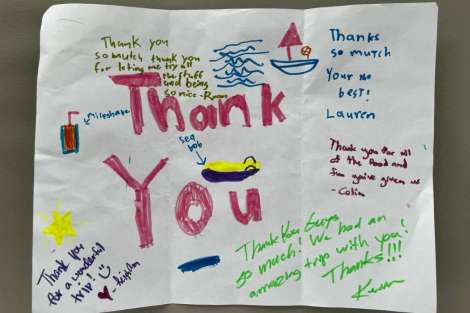 Thank you
so mutch thank you
for leting me try all
the stuff
and being
so nice - Ryan
Thanks
so mutch
Your the
best!
Lauren
Thank
You
milkshake
sea
bob
Thank you for all
of the food and
fun you've given us
- Colin
Thank you
for a wonderful
trip!
Thank You Guys
so much! We had an
amazing trip with you!
Thanks!!!